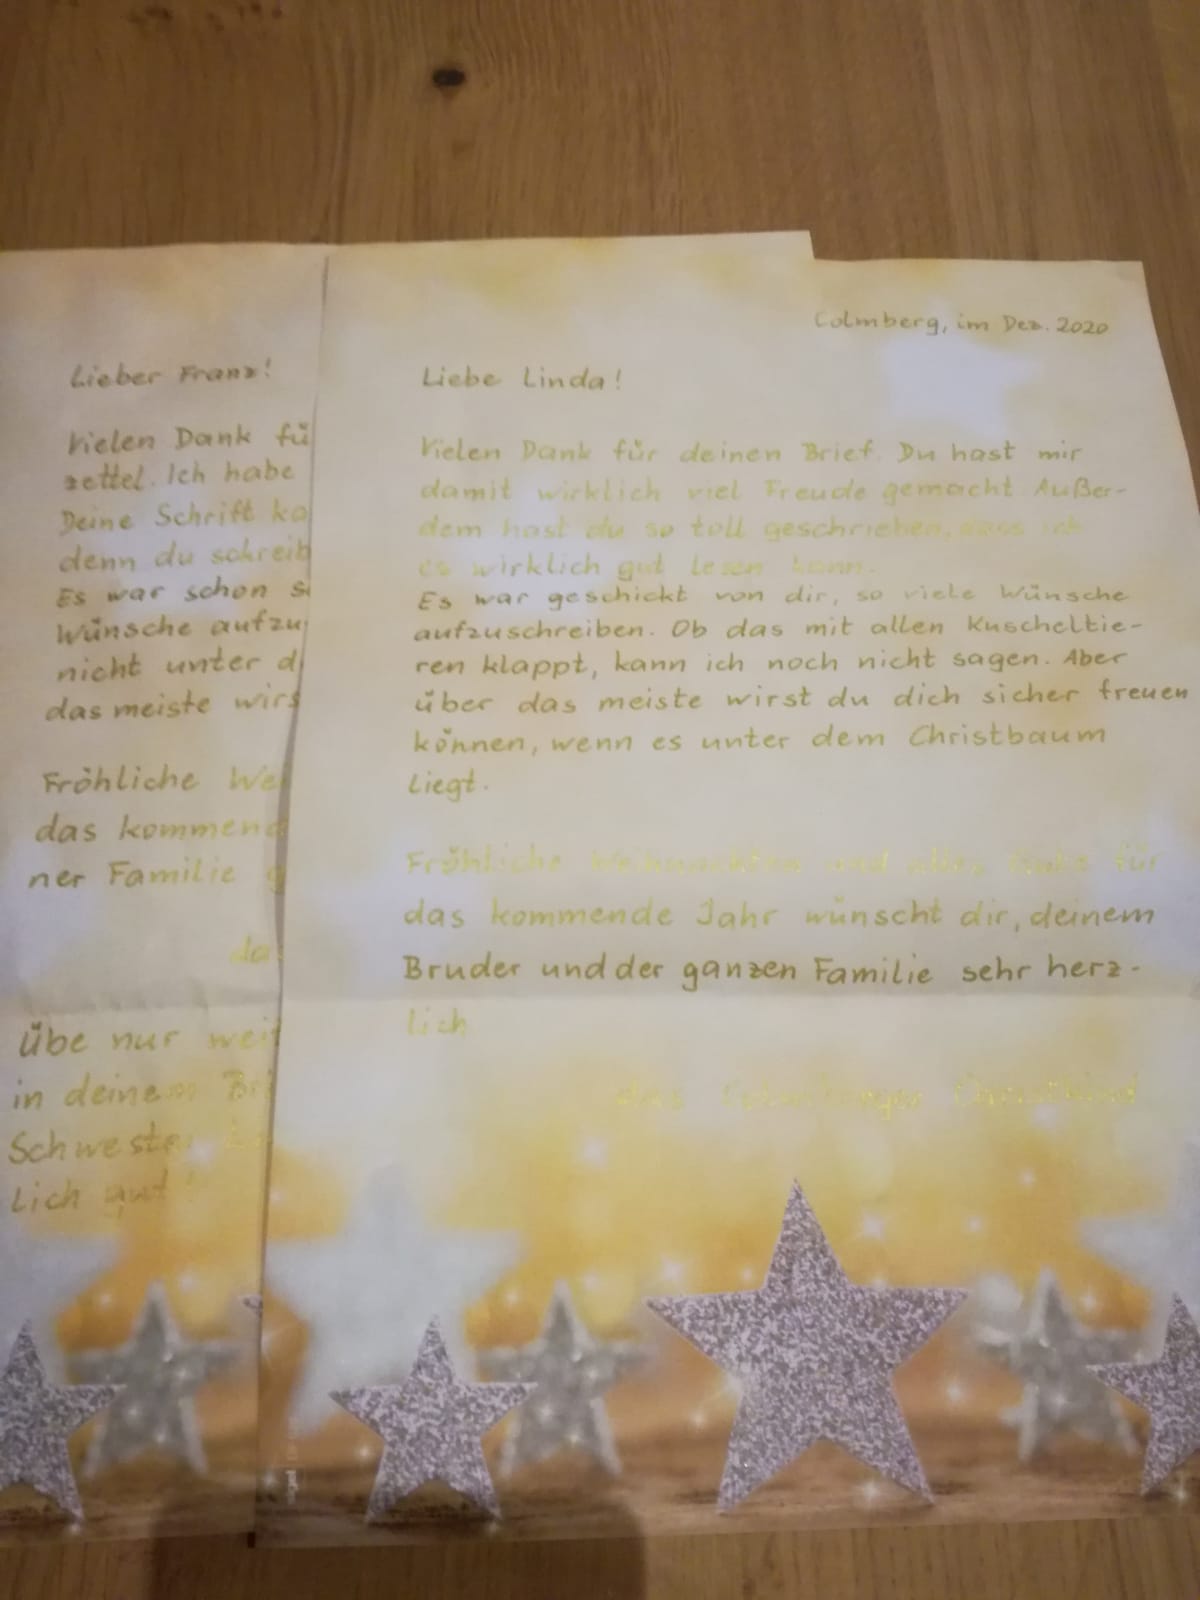 Lieber Franz!
Vielen Dank fü
zettel. Ich habe
Deine Schrift ka
denn du schreib
Es war schon s
Wünsche aufzu
nicht unter d
das meiste wirs
Fröhliche We
das kommend
ner Familie g
da
Übe nur weit
in deinem Bri
Schwester
lich gut!
Colmberg, im Dez. 2020
Liebe Linda!
Vielen Dank für deinen Brief. Du hast mir
damit wirklich viel Freude gemacht. Außer-
dem hast du so toll geschrieben, dass ich
es wirklich gut lesen kann.
Es war geschickt von dir, so viele Wünsche
aufzuschreiben. Ob das mit allen Kuscheltie-
ren klappt, kann ich noch nicht sagen. Aber
über das meiste wirst du dich sicher freuen
können, wenn es unter dem Christbaum
liegt.
Fröhliche Weihnachten und alles Gute für
das kommende Jahr wünscht dir, deinem
Bruder und der ganzen Familie sehr herz-
lich
das Colmberger Christkind
sigel